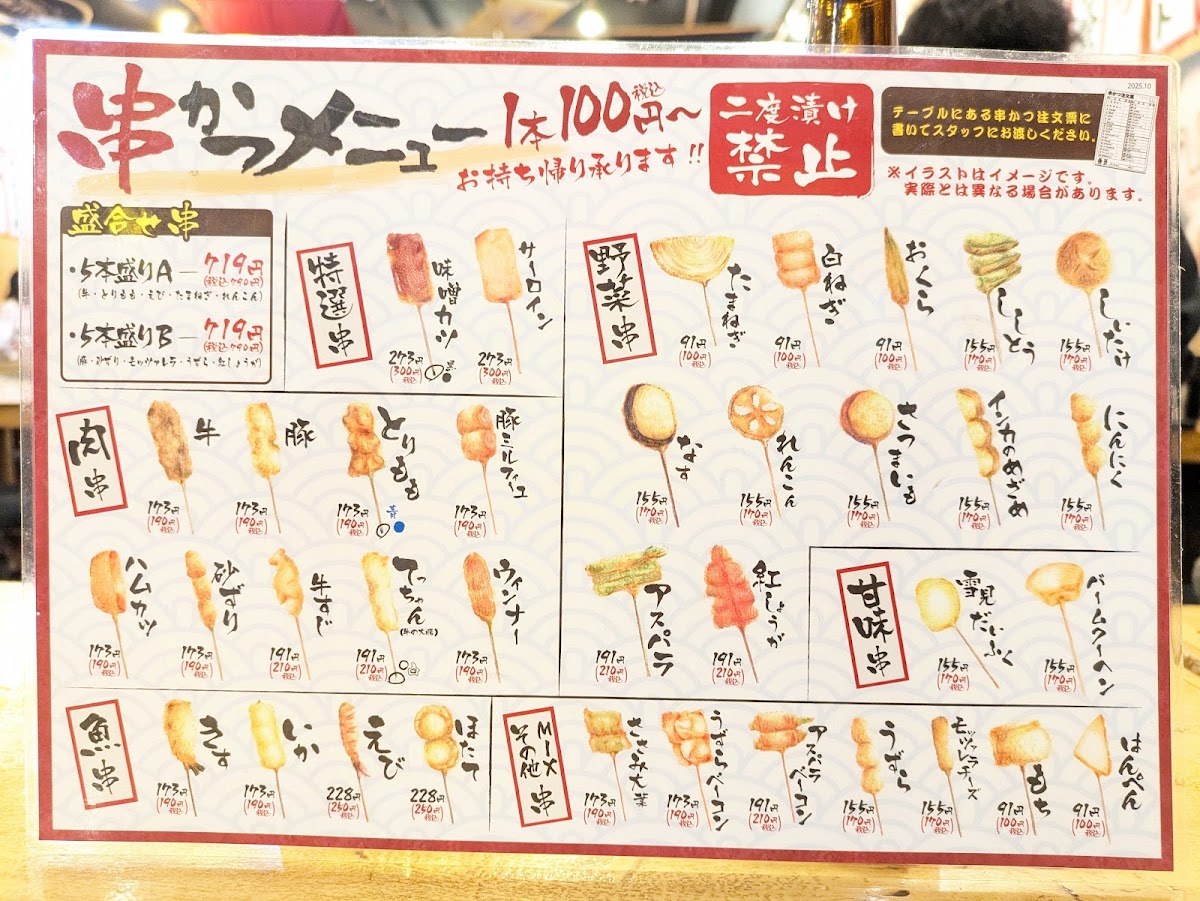 串かつメニュー
1本100円〜
税込
お持ち帰り承ります!!
二度漬け
禁止
テーブルにある串かつ注文票に
書いてスタッフにお渡しください。
2025.10
※イラストはイメージです。
実際とは異なる場合があります。
盛合せ串
・5本盛りA ― 719円
(税込790円)
(牛・とりもも・えび・たまねぎ・れんこん)
・5本盛りB ― 719円
(税込790円)
(豚・砂ずり・モッツァレラ・うずら・紅しょうが)
特選串
味噌カツ
273円
(300円)
税込
黒
サーロイン
273円
(300円)
税込
野菜串
たまねぎ
91円
(100円)
税込
白ねぎ
91円
(100円)
税込
おくら
91円
(100円)
税込
ししとう
155円
(170円)
税込
しいたけ
155円
(170円)
税込
なす
155円
(170円)
税込
れんこん
155円
(170円)
税込
さつまいも
155円
(170円)
税込
インカのめざめ
155円
(170円)
税込
にんにく
155円
(170円)
税込
アスパラ
191円
(210円)
税込
紅しょうが
191円
(210円)
税込
肉串
牛
173円
(190円)
税込
豚
173円
(190円)
税込
とりもも
173円
(190円)
税込
青
豚ミルフィーユ
173円
(190円)
税込
ハムカツ
173円
(190円)
税込
砂ずり
173円
(190円)
税込
牛すじ
191円
(210円)
税込
てっちゃん
(牛の大腸)
191円
(210円)
税込
白
ウィンナー
173円
(190円)
税込
甘味串
雪見だいふく
155円
(170円)
税込
バームクーヘン
155円
(170円)
税込
魚串
きす
173円
(190円)
税込
いか
173円
(190円)
税込
えび
228円
(250円)
税込
ほたて
228円
(250円)
税込
MIX
その他
串
ささみ大葉
173円
(190円)
税込
うずらベーコン
173円
(190円)
税込
アスパラベーコン
191円
(210円)
税込
うずら
155円
(170円)
税込
モッツァレラチーズ
155円
(170円)
税込
もち
91円
(100円)
税込
はんぺん
91円
(100円)
税込